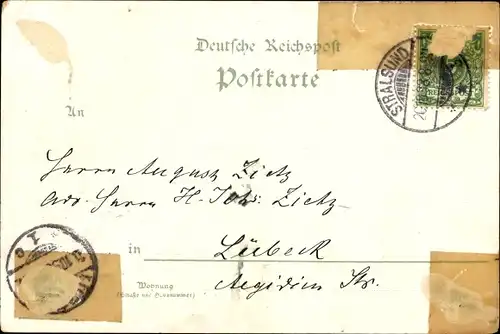 Deutsche Reichspost
Postkarte
STRALSUND
An
Herrn August Zietz
adr. Herrn H. Johs. Zietz
in Lübeck
Wohnung
(Straße und Hausnummer)
Aegidien Str.